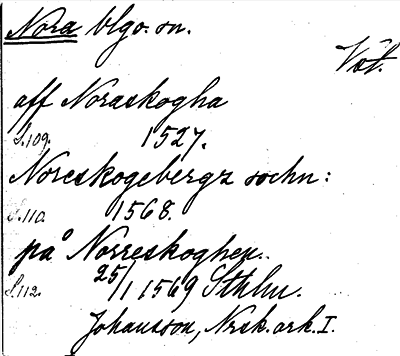 Nora blgo. sn.
Vstl.
aff Noraskogha
S. 109. 1527.
Noreskogebergz sochn:
S. 110. 1568.
på Norreskoghen.
S. 112. 25/1 1569 Sthlm.
Johansson, Nrsk. ark. I.